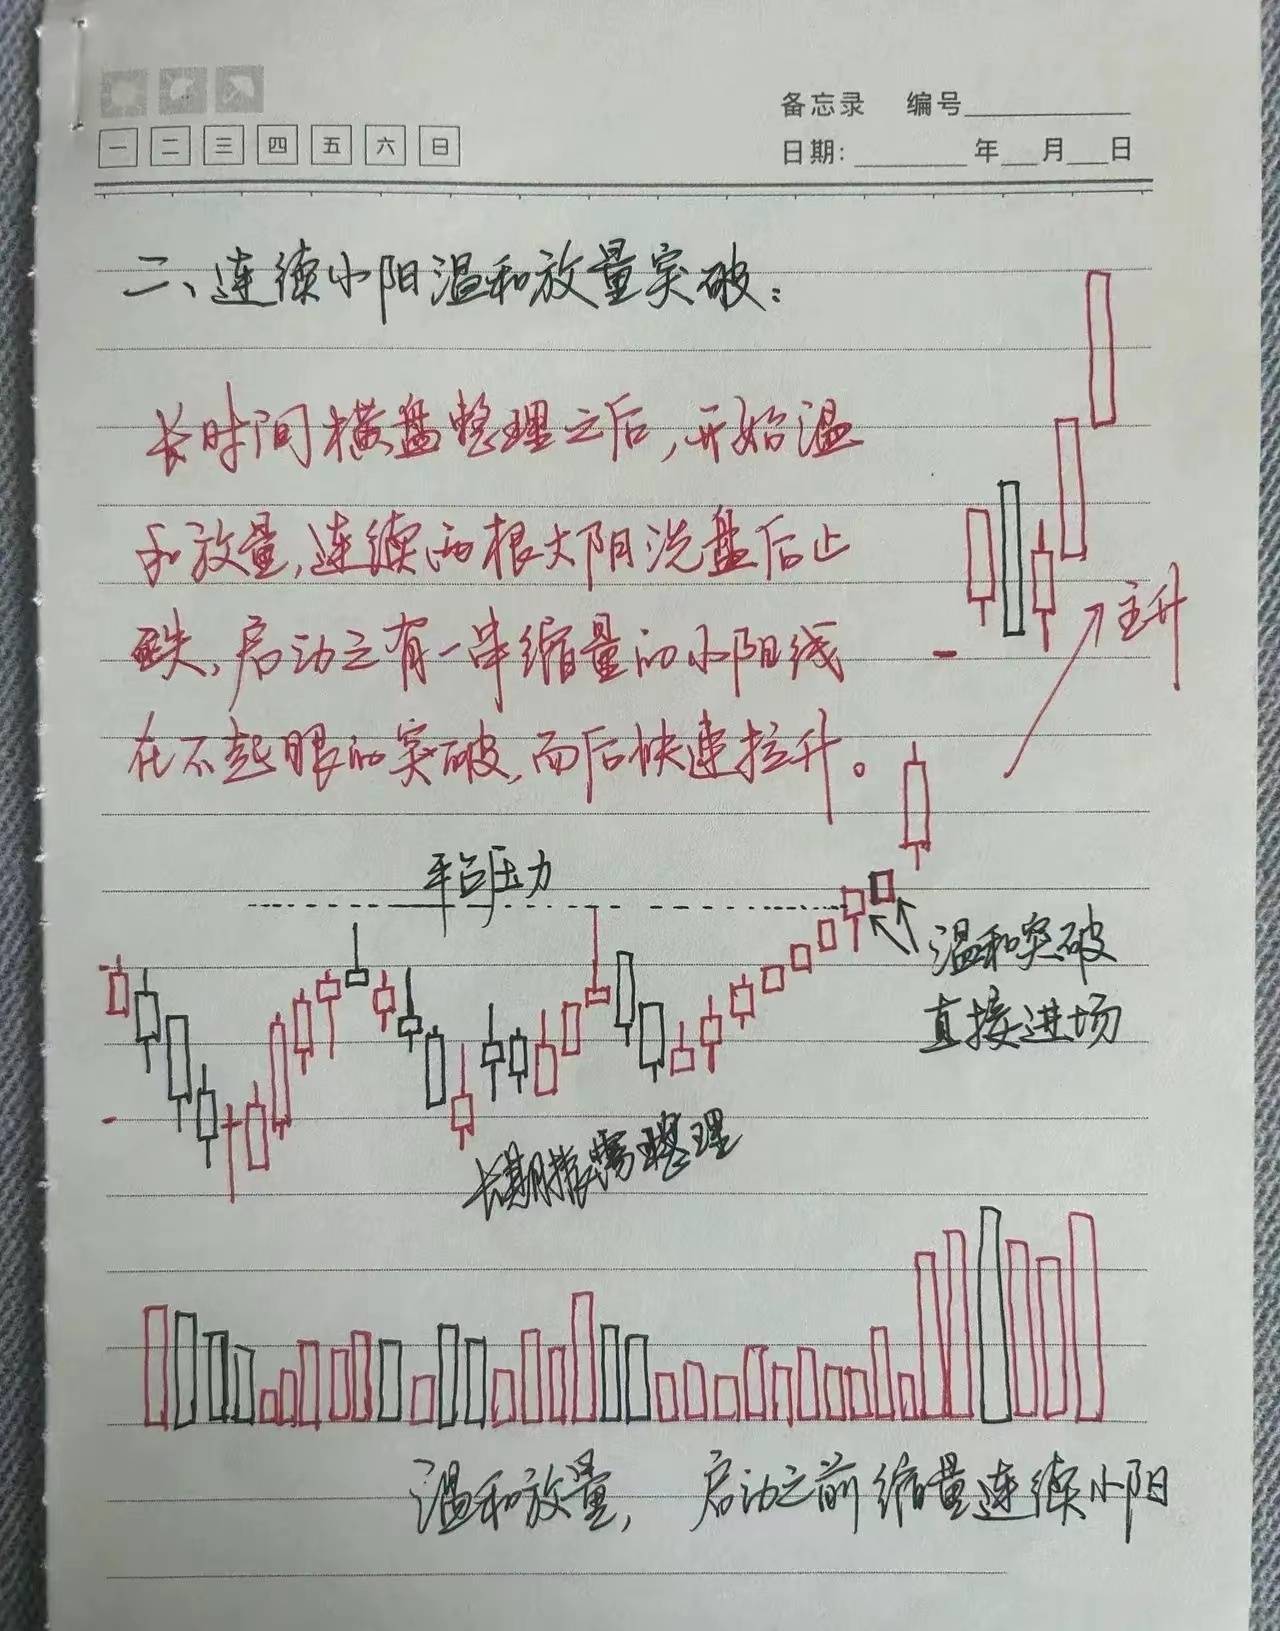 备忘录 编号
一 二 三 四 五 六 日
日期: 年 月 日
二、连续小阳温和放量突破:
长时间横盘整理之后,开始温
和放量,连续两根大阳洗盘后止
跌,启动之有一串缩量的小阳线
在不起眼的突破,而后快速拉升。
主升
平台压力
温和突破
直接进场
长期振荡整理
温和放量, 启动之前缩量连续小阳